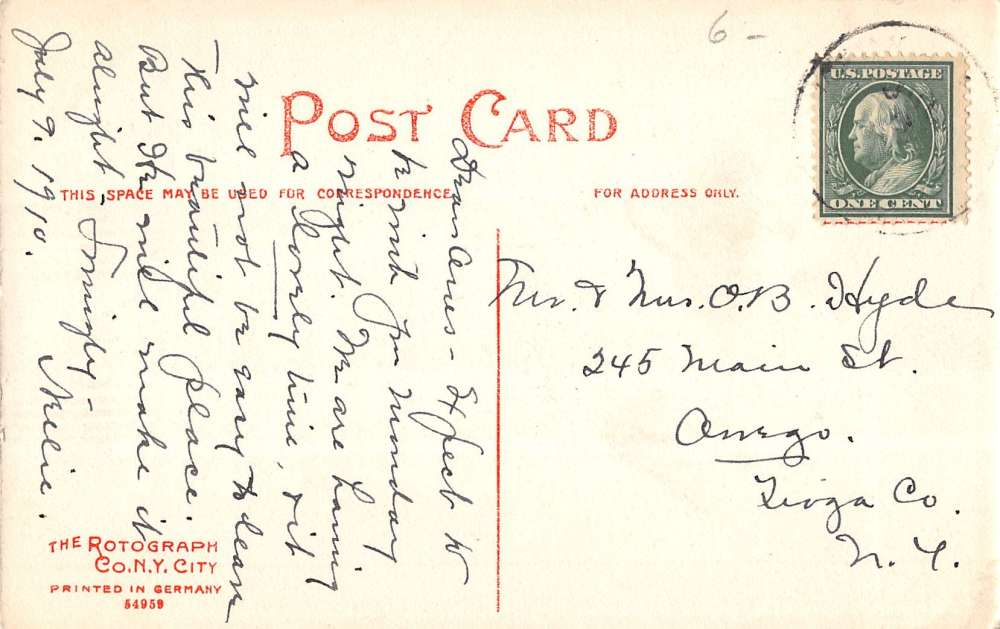 6-
U.S. POSTAGE
ONE CENT
POST CARD
THIS SPACE MAY BE USED FOR CORRESPONDENCE
FOR ADDRESS ONLY.
Expect to
be with you Monday
night. We are having
a lovely time, & it
will not be easy to leave
this beautiful place.
But He will make it
alright.
Lovingly -
July 9. 1910.
Mr. & Mrs. O.B. Hyde
245 Main St.
Owego.
Tioga Co.
N. Y.
THE ROTOGRAPH
CO. N.Y. CITY
PRINTED IN GERMANY
54959